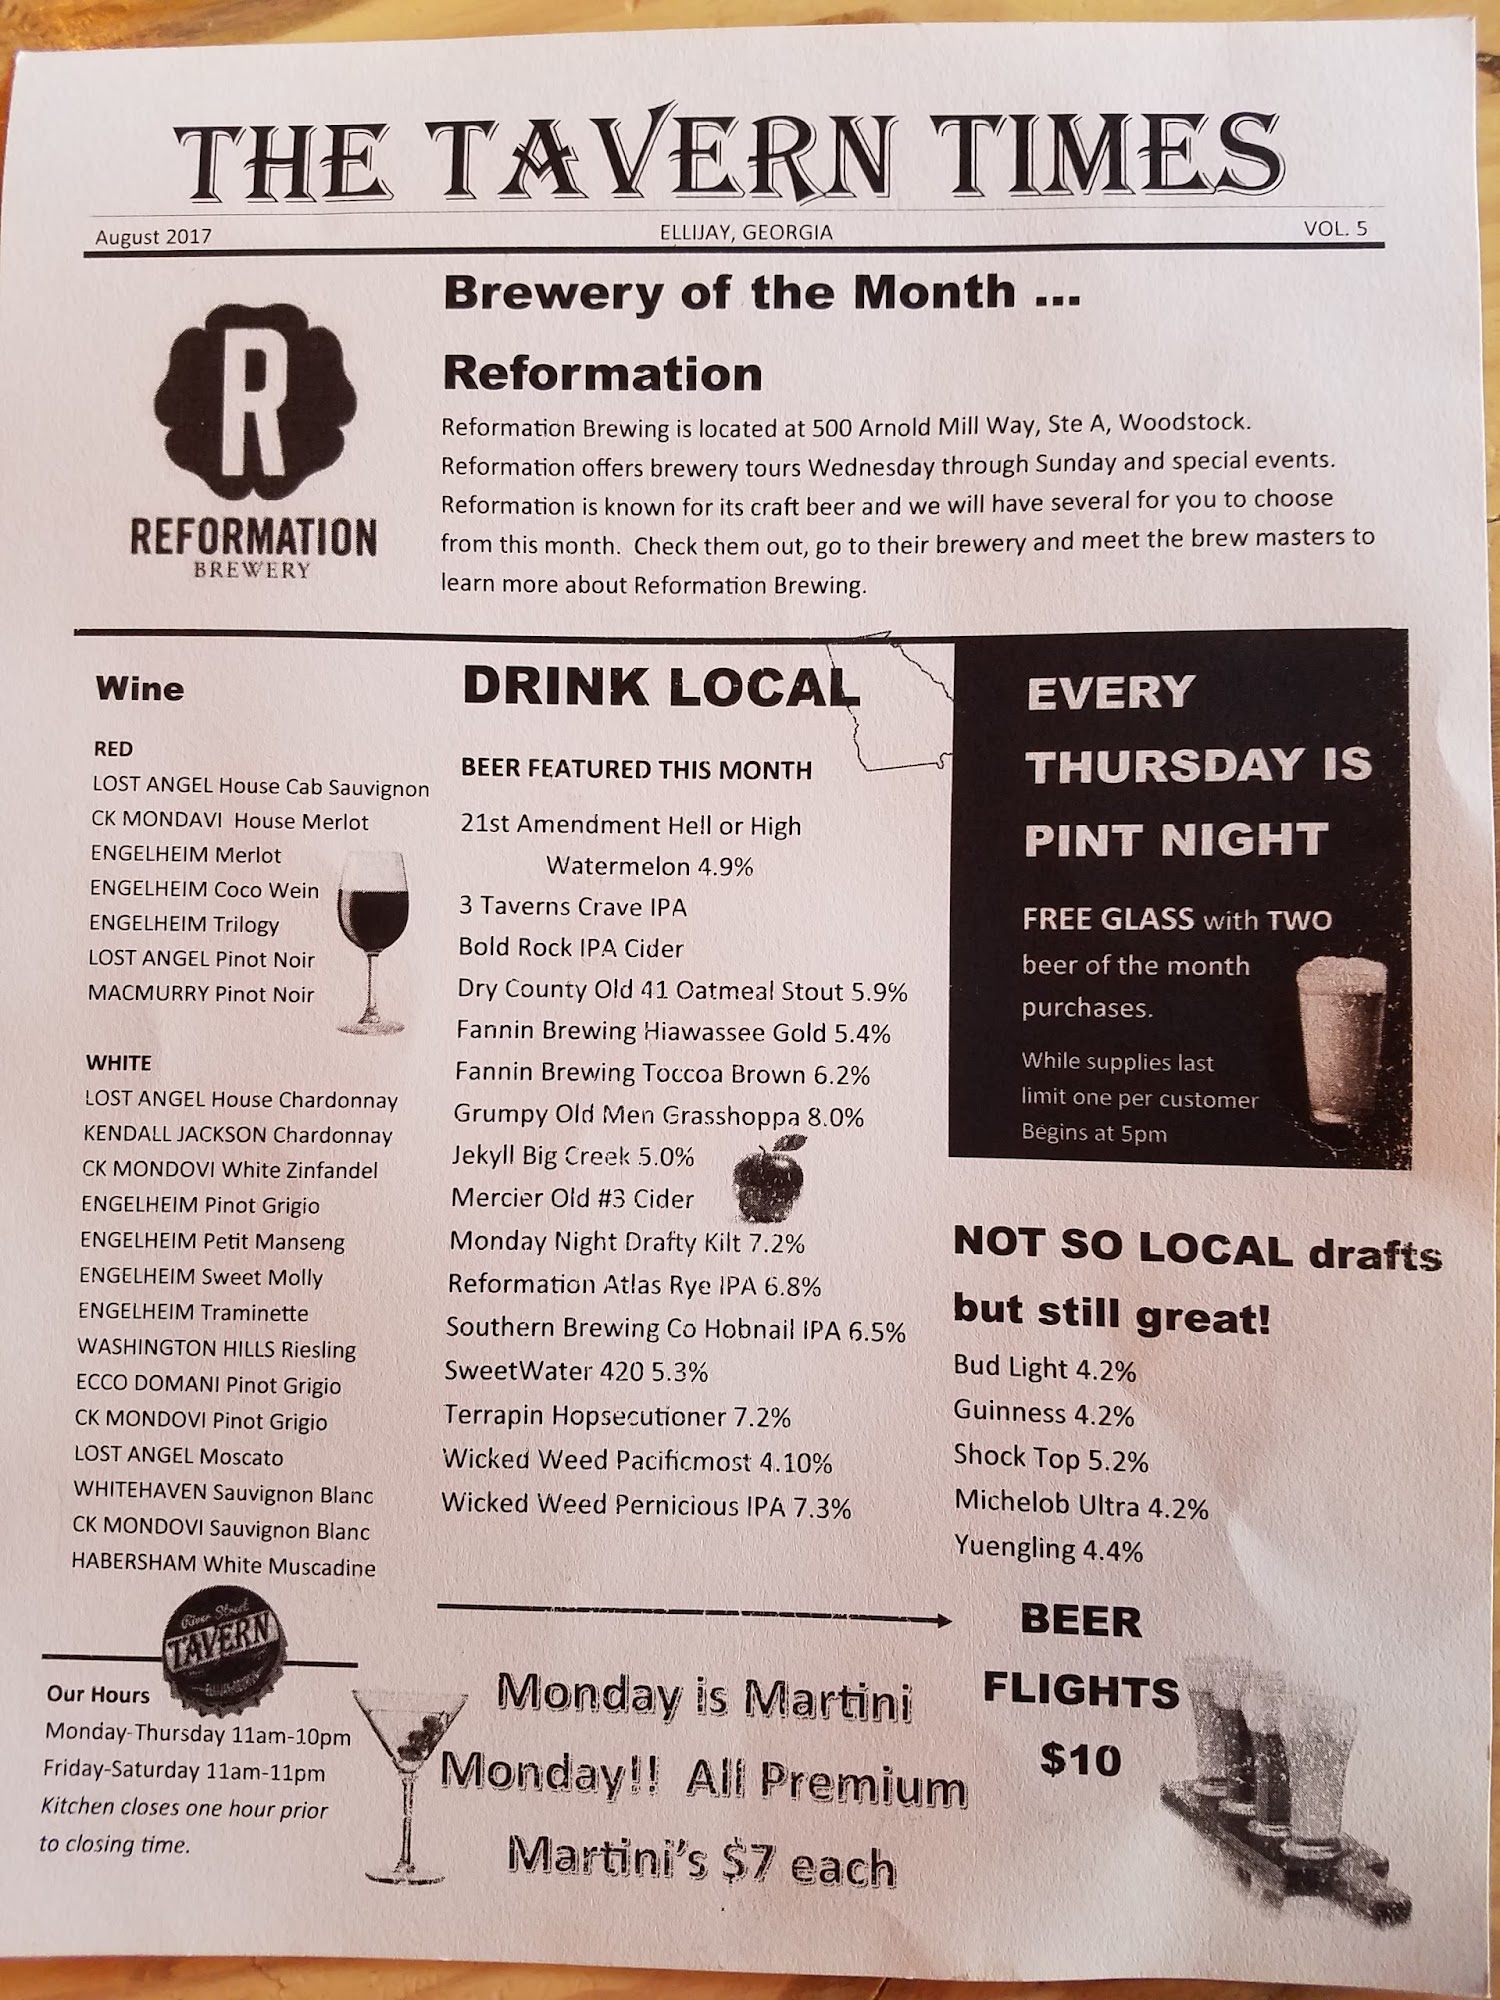 THE TAVERN TIMES
August 2017 ELLIJAY, GEORGIA VOL. 5
R
REFORMATION
BREWERY
Brewery of the Month ...
Reformation
Reformation Brewing is located at 500 Arnold Mill Way, Ste A, Woodstock.
Reformation offers brewery tours Wednesday through Sunday and special events.
Reformation is known for its craft beer and we will have several for you to choose
from this month. Check them out, go to their brewery and meet the brew masters to
learn more about Reformation Brewing.
Wine
RED
LOST ANGEL House Cab Sauvignon
CK MONDAVI House Merlot
ENGELHEIM Merlot
ENGELHEIM Coco Wein
ENGELHEIM Trilogy
LOST ANGEL Pinot Noir
MACMURRY Pinot Noir
WHITE
LOST ANGEL House Chardonnay
KENDALL JACKSON Chardonnay
CK MONDOVI White Zinfandel
ENGELHEIM Pinot Grigio
ENGELHEIM Petit Manseng
ENGELHEIM Sweet Molly
ENGELHEIM Traminette
WASHINGTON HILLS Riesling
ECCO DOMANI Pinot Grigio
CK MONDOVI Pinot Grigio
LOST ANGEL Moscato
WHITEHAVEN Sauvignon Blanc
CK MONDOVI Sauvignon Blanc
HABERSHAM White Muscadine
DRINK LOCAL
BEER FEATURED THIS MONTH
21st Amendment Hell or High
Watermelon 4.9%
3 Taverns Crave IPA
Bold Rock IPA Cider
Dry County Old 41 Oatmeal Stout 5.9%
Fannin Brewing Hiawassee Gold 5.4%
Fannin Brewing Toccoa Brown 6.2%
Grumpy Old Men Grasshoppa 8.0%
Jekyll Big Creek 5.0%
Mercier Old #3 Cider
Monday Night Drafty Kilt 7.2%
Reformation Atlas Rye IPA 6.8%
Southern Brewing Co Hobnail IPA 6.5%
SweetWater 420 5.3%
Terrapin Hopsecutioner 7.2%
Wicked Weed Pacificmost 4.10%
Wicked Weed Pernicious IPA 7.3%
EVERY
THURSDAY IS
PINT NIGHT
FREE GLASS with TWO
beer of the month
purchases.
While supplies last
limit one per customer
Begins at 5pm
NOT SO LOCAL drafts
but still great!
Bud Light 4.2%
Guinness 4.2%
Shock Top 5.2%
Michelob Ultra 4.2%
Yuengling 4.4%
River Street
TAVERN
Our Hours
Monday-Thursday 11am-10pm
Friday-Saturday 11am-11pm
Kitchen closes one hour prior
to closing time.
Monday is Martini
Monday!! All Premium
Martini's $7 each
BEER
FLIGHTS
$10